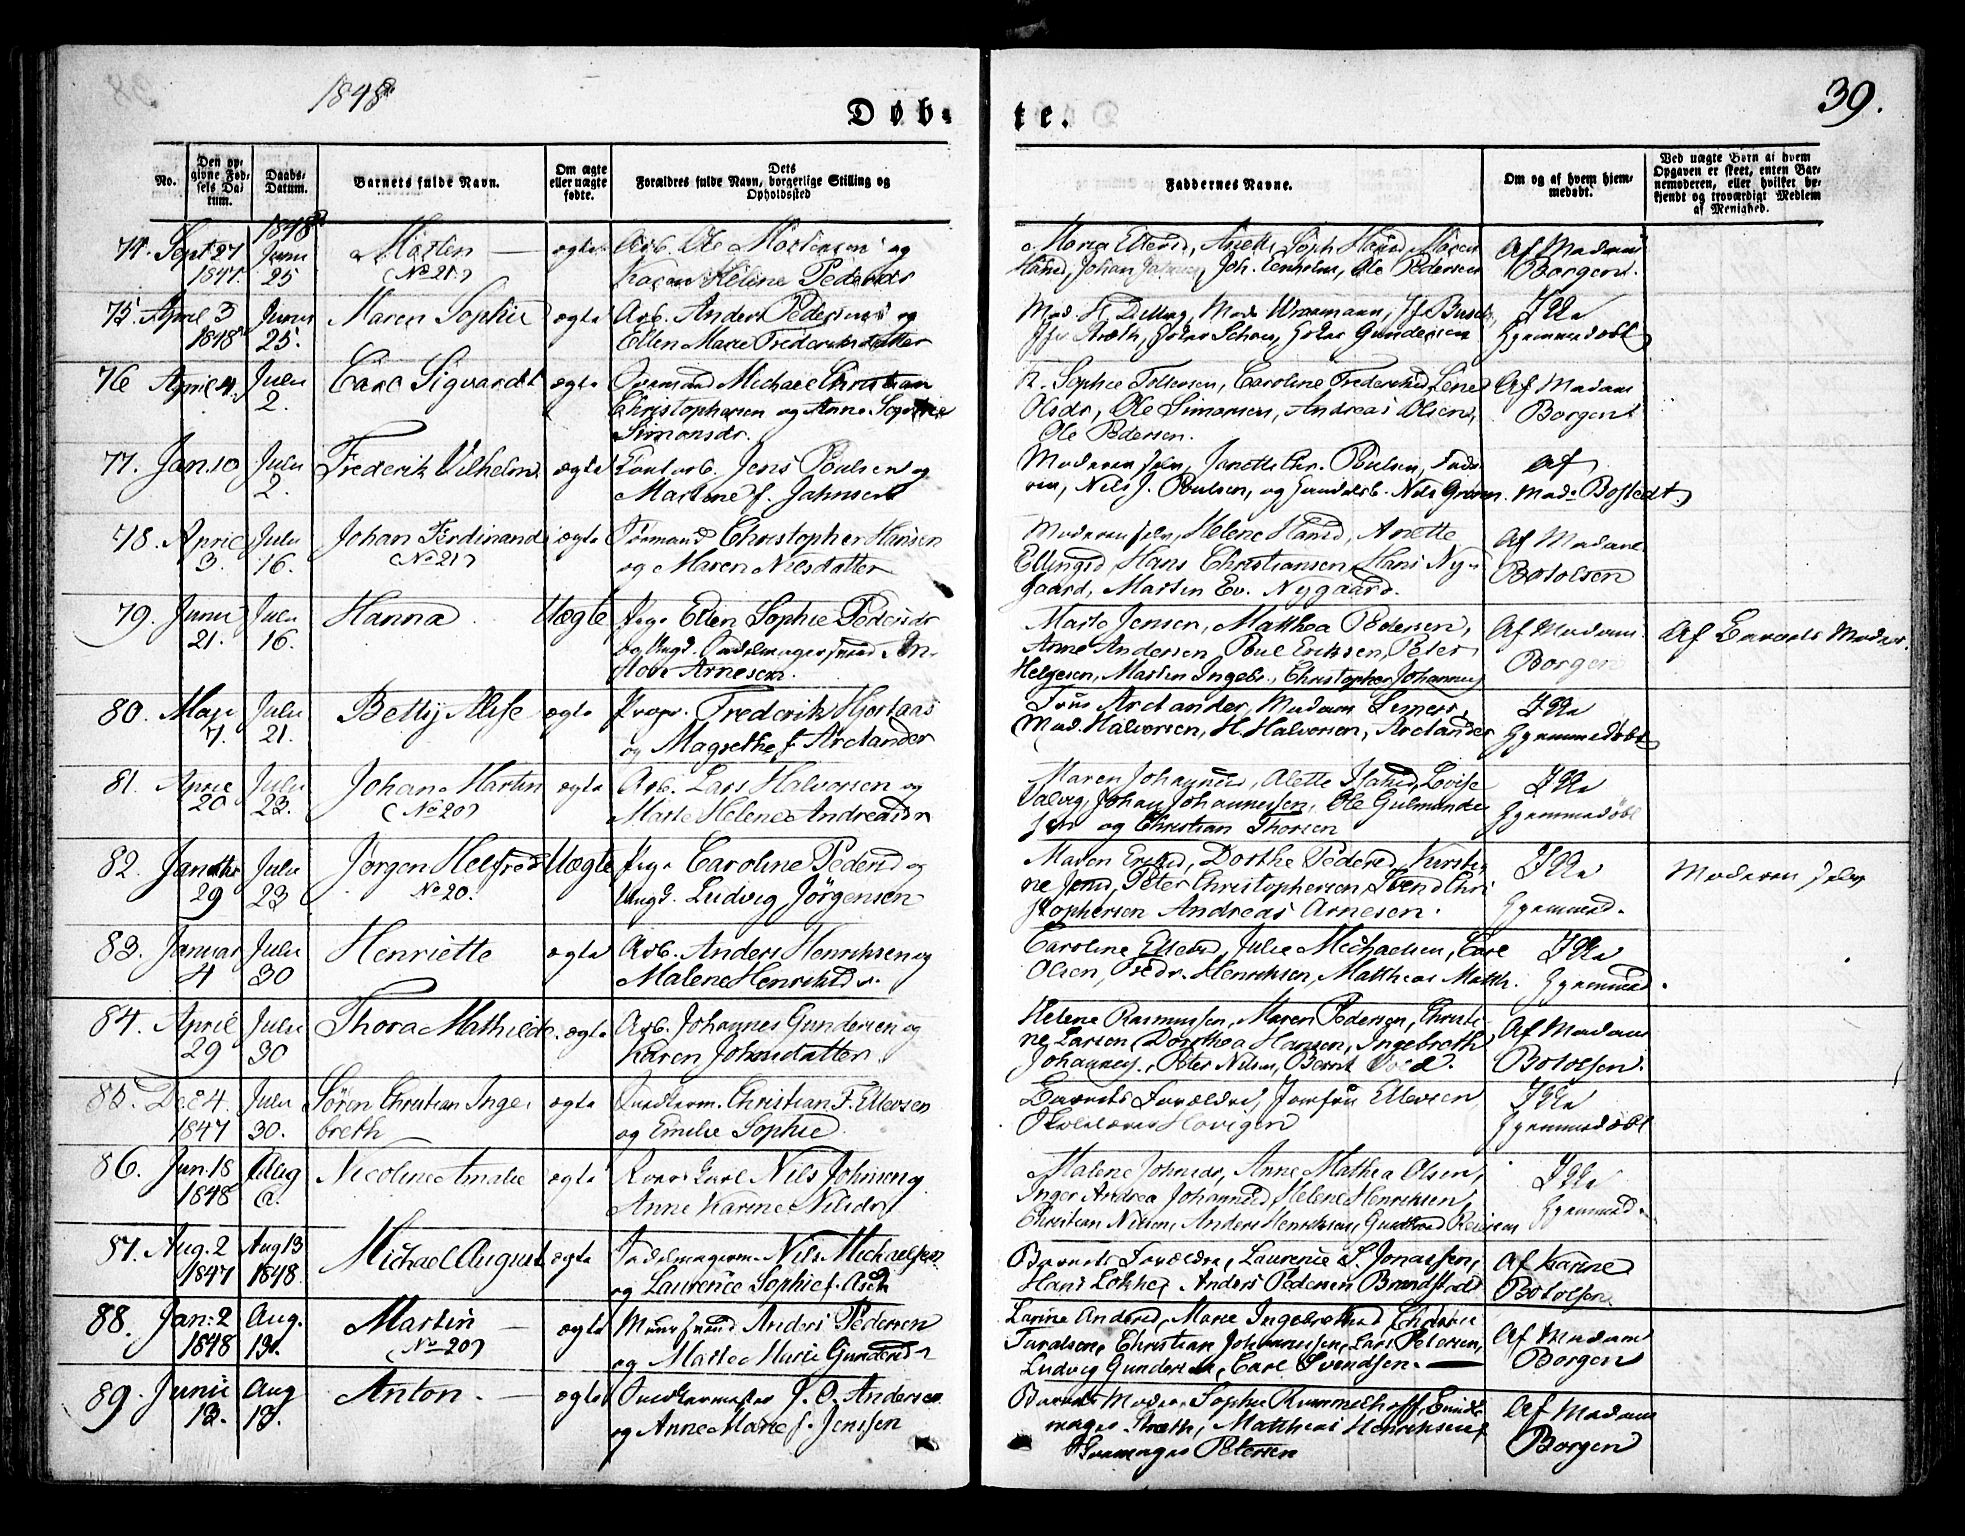 1848
39.
Døb-
te.
No.
Den op-
givne Fød-
sels Da-
tum.
Daabs-
Datum.
Barnets fulde Navn.
Om ægte
eller uægte
fødte.
Dets
Forældres fulde Navn, borgerlige Stilling og
Opholdssted
Faddernes Navne.
Om og af hvem hjem-
medøbt.
Ved uægte Børn af hvem
Opgaven er skeet, enten Bar-
nemoderen, eller hvilket be-
kjendt og troværdigt Medlem
af Menighed.
1848
74. Sept 27 Juni Morten ægte Arb. Ole Mortensen og
1847. 25 (No 21) Karen Helene Pedersdr
Maria Ellevsd, Anette Soph. Hansd, Maren
Hansd, Johan Joh. Ole Pedersen
Af Madam
Borgen.
75. April 3 Juni Maren Sophie ægte Arb. Anders Pedersen og
1848 25. Ellen Marie Frederiksdatter
Mad. Mad. Wissmann, Jf. Busch,
Jfr Ræth, Peder Gundersen
Ikke
hjemmedøbt
76 April 4. Juli Carl Sigvardt ægte Michael Christian
2. Christophersen og Anne Sophie
Simonsdr.
Sophie Tollevsen, Caroline Frederiksd, Lene
Olsdr, Ole Simonsen, Andreas Olsen,
Ole Pedersen.
Af Madam
Borgen
77. Jan. 10 Juli Frederik Vilhelm ægte Jens Poulsen og
2. Martine f. Jahnsen
Moderen selv, Janette Chr. Poulsen, Fade-
ren, Nils J. Poulsen, og Handelsb. Nils Gram.
af
Mad. Bostedt
78. April Juli Johan Ferdinand ægte Tømmand Christopher Hansen
3. 16. (No 21) og Maren Nilsdatter
Moderen selv, Helene Hansd, Anette
Ellingsd Hans Christiansen, Hans Ny-
gaard, Martin Ev. Nygaard.
Af Madam
Botolsen
79. Juni Juli Hanna. Uægte Pige Ellen Sophie Pedersdr
21. 16. og Ungk. An-
Arnesen.
Marte Jensen, Matthea Pedersen,
Anne Andersen, Poul Eriksen, Peter
Helgesen, Martin Ingebr., Christopher Johannes
Af Madam
Borgen
Af Barnets Moder.
80. May Juli Betty Alise ægte Propr. Frederik Hjortaas
7. 21. og Magrethe f. Arctander
Arctander, Madam
Mad. Halvorsen, H. Halvorsen, Arctander
Ikke
hjemmedøbt
81. April Juli Johan Martin ægte Arb. Lars Halvorsen og
20 23. (No 20) Marte Helene Andreasdr
Maren Johannesd, Alette Hansd, Lovise
Johan Johannessen, Ole Gulmunde
sen og Christian Thorsen
Ikke
hjemmedøbt
82. Januar Juli Jørgen Helfred Uægte Pige Caroline Pedersd og
29 23 No 20. Ungk. Ludvig Jørgensen
Maren Eriksd, Dorthe Pedersd, Kirsti-
ne Jensd, Peter Christophersen, Svend Chri
stophersen Andreas Arnesen.
Ikke
hjemmed.
Moderen selv
83. Januar Juli Henriette ægte Arb. Anders Henriksen og
4 30 Malene Henriksdr.
Caroline Ellevsd, Julie Michaelsen, Carl
Olsen, Fredr. Henriksen, Matthias Matth.
Ikke
hjemmed.
84. April Juli Thora Mathilde. ægte Arb. Johannes Gundersen og
29 30 Karen Johnsdatter.
Helene Rasmussen, Maren Pedersen, Christi-
ne Larsen, Dorthea Hansen, Ingebreth
Johannes., Peter Nilsen, Bernt
Af Madam
Botolsen.
85. Dec 4. Juli Søren Christian Inge- ægte Christian F. Ellevsen
1847 30. breth og Emilie Sophie.
Barnets Forældre, Jomfru Ellevsen
Skolelærer Hovigen
Ikke
hjemmedøbt
86. Jun. 18 Aug Nicoline Amalie ægte Nils Johnsen og
1848 6. Anne Karine Nilsdr
Malene Johnsdr, Anne Mathea Olsen,
Inger Andrea Johannesd, Helene Henriksen,
Christian Nilsen, Anders Henriksen,
Ikke
hjemmed.
87. Aug. 2 Aug 13 Michael August ægte Nils Michaelsen
1847 1848. og Laurence Sophie f.
Barnets Forældre, Laurence S. Jonassen,
Hans Lökke, Anders Pedersen Brandstad
Af Karine
Botolsen
88. Jan. 2 Aug. Martin ægte Anders Pedersen
1848 13. (No 20) og Marte Marie Gundersdr
Larine Andersd, Marie Ingebretsd
Christian Johannessen, Lars Petersen,
Ludvig Gundersen, Carl Svendsen.
Af Madam
Borgen
89. Junii Aug Anton. ægte J. O. Andersen
13. 13. og Anne Marie f. Jenssen
Barnets Moder, Sophie Rummelhoff,
mager Ræth, Matthias Henriksen,
Petersen
Af Madam
Borgen